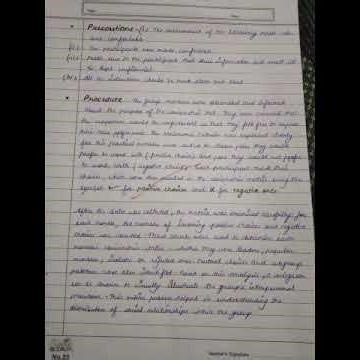 Date
• Precautions - (i) The environment of the
are comfortable
(ii) The participants were made comfortable
(iii) Made sure to the participant that their information and result will
be kept confidential
(iv) All the instructions should be made clear and
• Procedure - The group members were assembled and informed
about the purpose of the sociometric test. They were assured that
the responses would be confidential so that they felt free to express
their true preferences. The sociometric criterion was explained clearly
for this practical members were asked to choose peers they would
prefer to work with (positive choice) and peers they would not prefer
to work with (negative choice). Each participant made their
choices, which were then plotted in the sociometric matrix using the
symbol for positive choices and X for negative ones.
After the data was collected, the matrix was examined carefully. For
each member, the number of incoming positive choices and negative
choices was counted. These counts were used to determine each
member sociometric status whether they were leaders, popular
members, isolates or rejected ones. Mutual choices and subgroup
patterns were also identified. Based on this analysis, a sociogram
was drawn to visually illustrate the group's interpersonal
structure. This entire process helped in understanding the
distribution of social relationships within the group.
No.22
Teacher's Signature